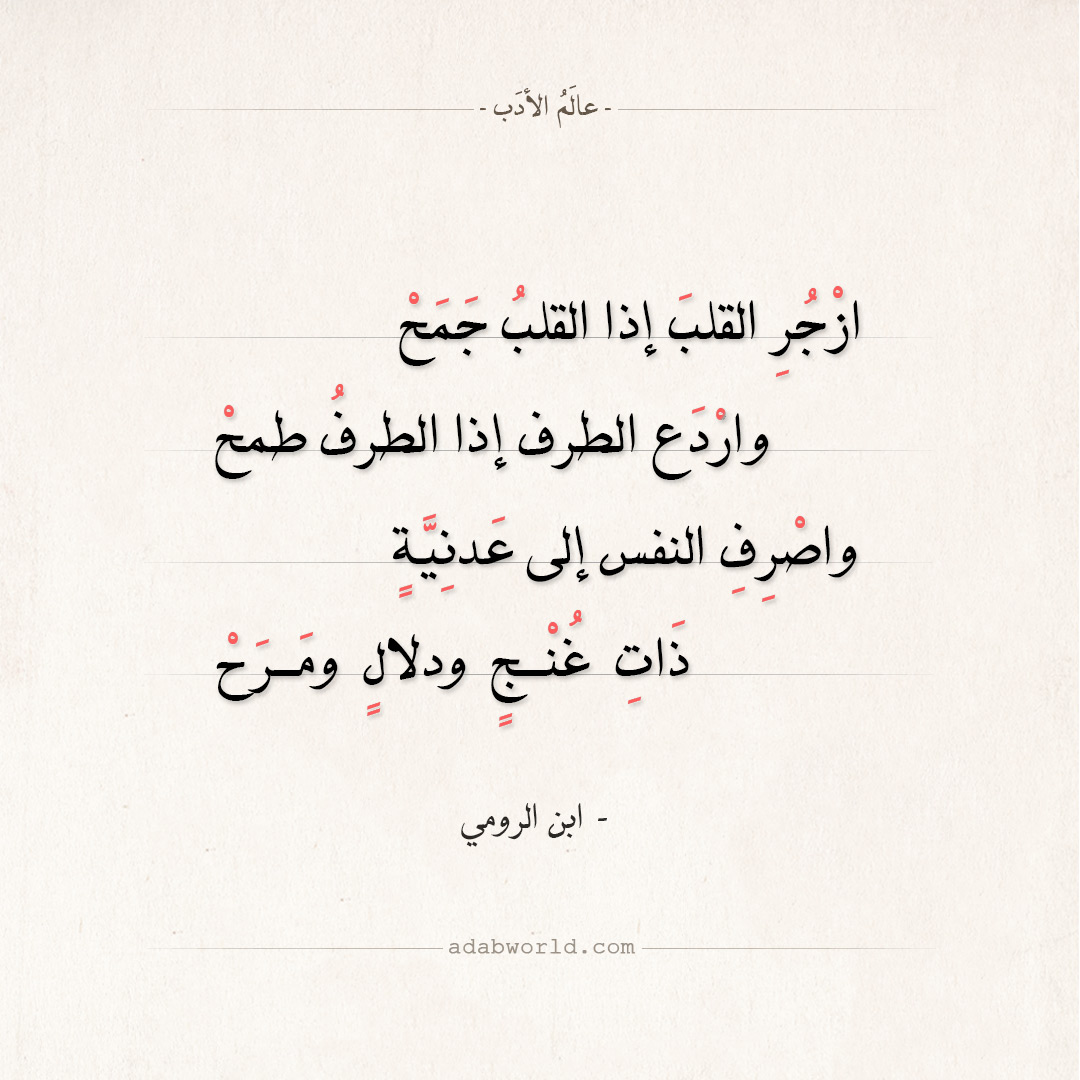 - عالَمُ الأدَب -
ازْجُرِ القلبَ إذا القلبُ جَمَحْ
وارْدَع الطرف إذا الطرفُ طمحْ
واصْرِفِ النفس إلى عَدنِيَّةٍ
ذَاتِ غُنْـجٍ ودلالٍ ومَـرَحْ
- ابن الرومي
adabworld.com